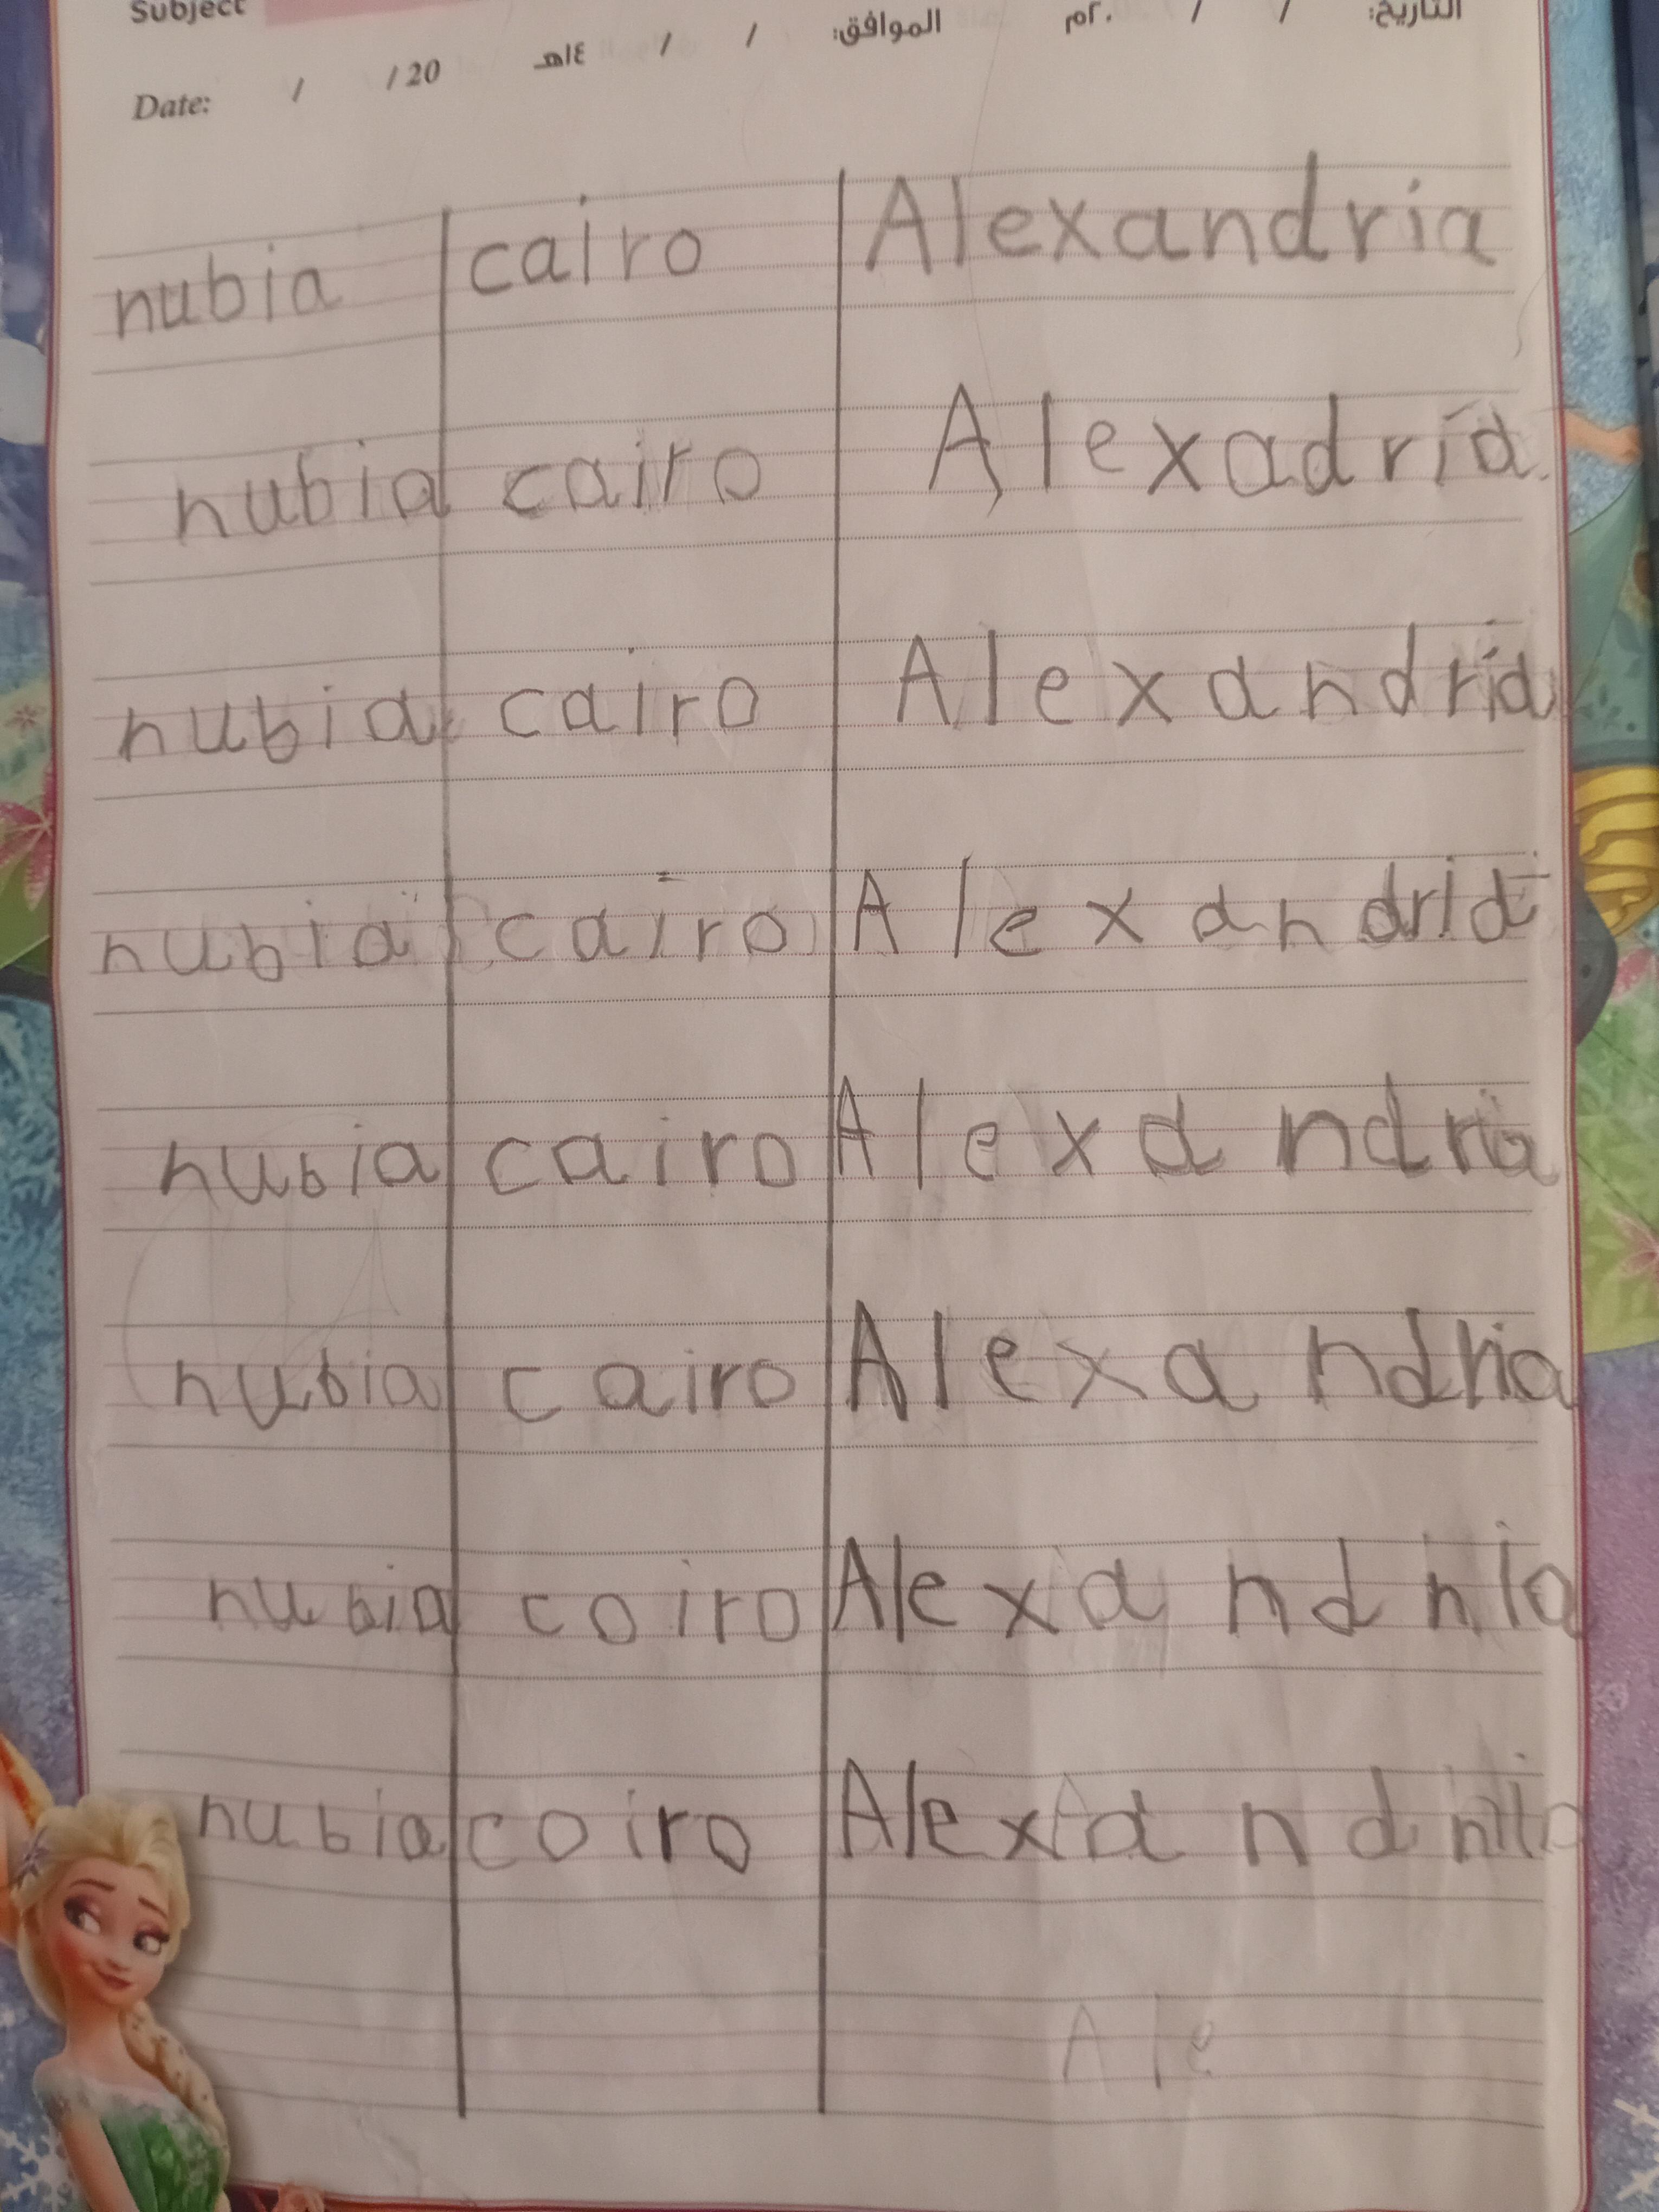 Subject
التاريخ: / / ٢٠م الموافق: / / ١٤هـ
Date: / / 20
nubia cairo Alexandria
nubia cairo Alexadria
nubia cairo Alexandria
nubia cairo Alexandria
nubia cairo Alexandria
nubia cairo Alexandria
nubia coiro Alexandnia
nubia coiro Alexandnia
Ale